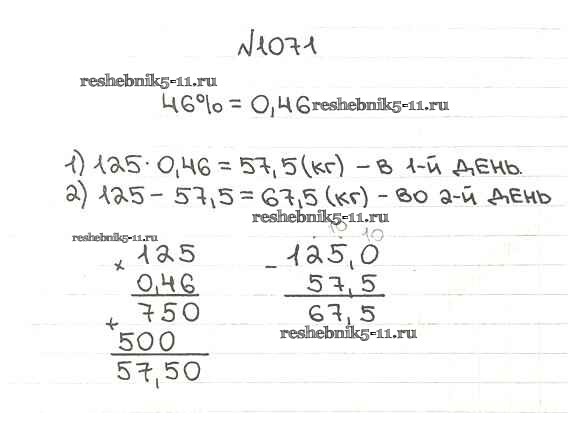 №1071
reshebnik5-11.ru
46% = 0,46 reshebnik5-11.ru
1) 125 · 0,46 = 57,5 (кг) – в 1-й день.
2) 125 – 57,5 = 67,5 (кг) – во 2-й день
reshebnik5-11.ru
reshebnik5-11.ru
× 125
0,46
750
+
500
57,50
10 10
– 125,0
57,5
67,5
reshebnik5-11.ru